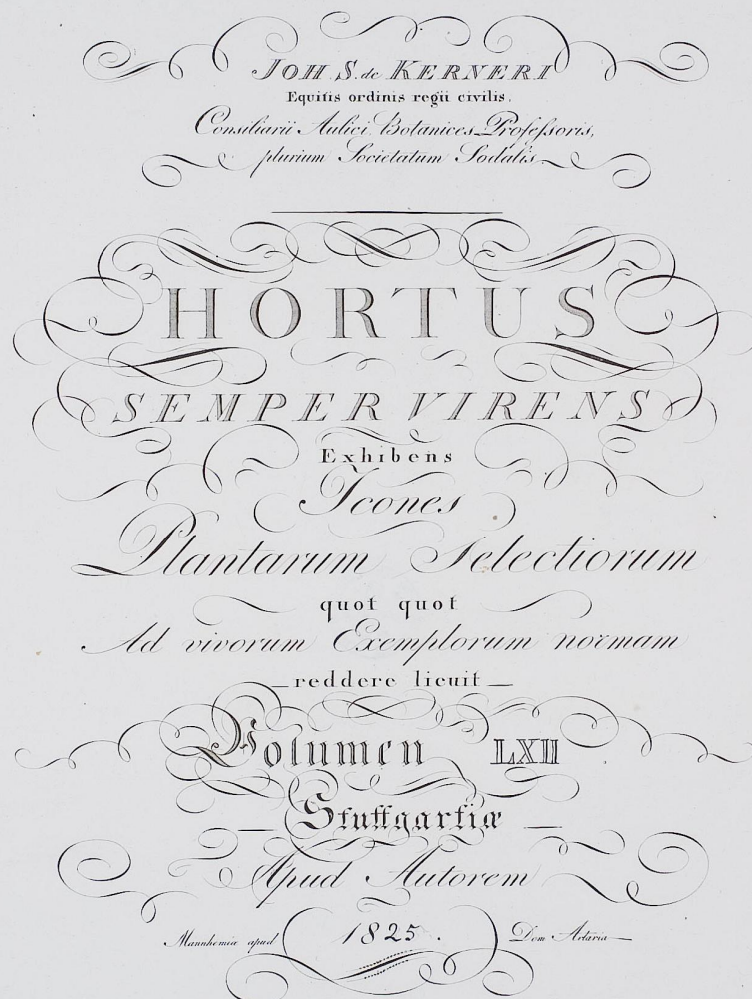 JOH. S. de KERNERI
Equitis ordinis regii civilis,
Consiliarii Aulici, Botanices Professoris,
plurium Societatum Sodalis
HORTUS
SEMPER VIRENS
Exhibens
Icones
Plantarum Selectiorum
quot quot
Ad vivorum Exemplorum normam
—reddere licuit—
Volumen LXII
— Stuttgartiæ —
Apud Autorem
Mannhemiæ apud 1825. Dom Artaria—